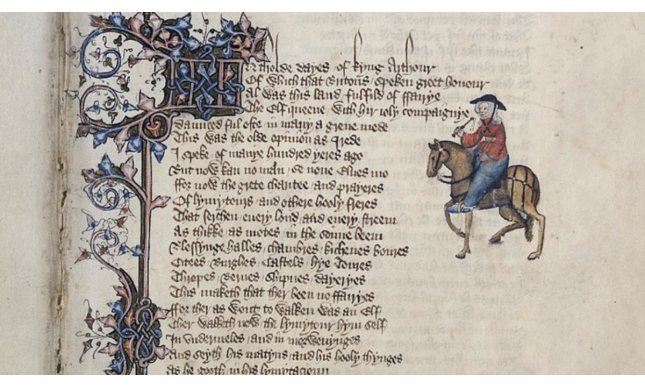 In tholde dayes of kyng Arthour
Of which that Britons speken greet honour
Al was this land fulfild of ffairye
The Elf queene with hir ioly compaignye
Daunced ful ofte in many a grene mede
This was the olde opinion as I rede
I speke of manye hundred yeres ago
But now kan no man se none Elues mo
ffor now the grete charitee and prayeres
Of lymytours and othere hooly freres
That serchen euery lond and euery streem
As thikke as motes in the sonne beem
Blessynge halles chambres kichenes boures
Citees Burghes Castels hye Toures
Thropes Bernes Shipnes dayeryes
This maketh that ther been no ffairyes
ffor ther as wont to walken was an Elf
Ther walketh now the lymytour hym self
In vndermeles and in morwenynges
And seyth his matyns and his hooly thynges
As he gooth in his lymytacioun